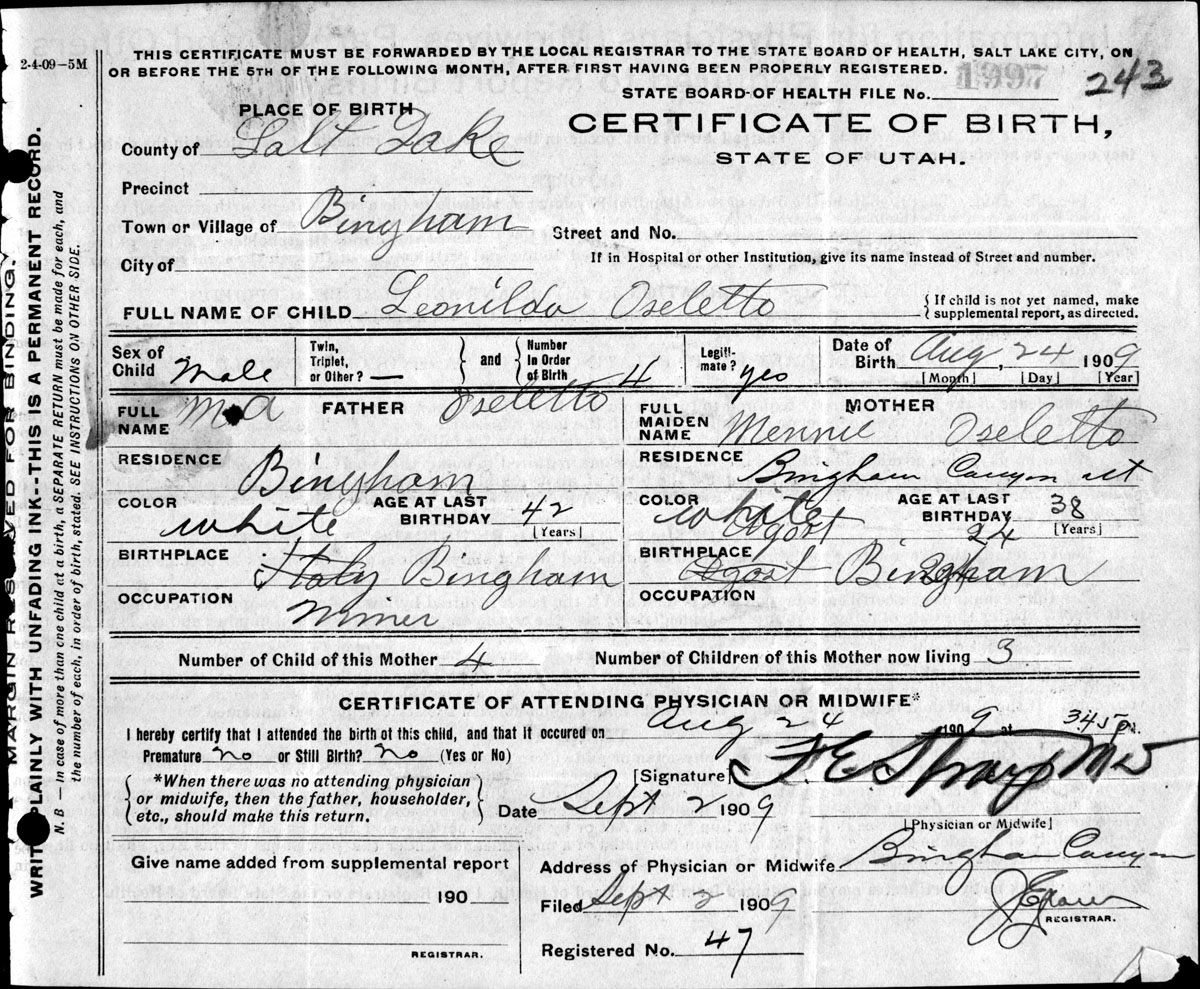 2-4-09-5M
THIS CERTIFICATE MUST BE FORWARDED BY THE LOCAL REGISTRAR TO THE STATE BOARD OF HEALTH, SALT LAKE CITY, ON
OR BEFORE THE 5TH OF THE FOLLOWING MONTH, AFTER FIRST HAVING BEEN PROPERLY REGISTERED.
1997
243
STATE BOARD OF HEALTH FILE No.
PLACE OF BIRTH
CERTIFICATE OF BIRTH,
STATE OF UTAH.
County of Salt Lake
Precinct
Town or Village of Bingham
Street and No.
City of
If in Hospital or other Institution, give its name instead of Street and number.
FULL NAME OF CHILD Leonilda Oseletto
{If child is not yet named, make supplemental report, as directed.
Sex of Child Male
Twin, Triplet, or Other? — } and { Number in Order of Birth 4
Legiti-mate? yes
Date of Birth Aug, 24 1909
[Month] [Day] [Year]
FULL NAME FATHER Oseletto
FULL MAIDEN NAME MOTHER Mennie Oseletto
RESIDENCE Bingham
RESIDENCE Bingham Canyon ut
COLOR white AGE AT LAST BIRTHDAY 42 [Years]
COLOR white AGE AT LAST BIRTHDAY 38 [Years]
Agost 24
BIRTHPLACE Italy Bingham
BIRTHPLACE Agost Bingham
OCCUPATION Miner
OCCUPATION
Number of Child of this Mother 4
Number of Children of this Mother now living 3
CERTIFICATE OF ATTENDING PHYSICIAN OR MIDWIFE*
I hereby certify that I attended the birth of this child, and that it occured on Aug 24 1909 at 345 P M.
Premature no or Still Birth? No (Yes or No)
*When there was no attending physician
or midwife, then the father, householder,
etc., should make this return.
[Signature] F. E. Straup MD
Date Sept 2 1909
[Physician or Midwife]
Give name added from supplemental report
190
REGISTRAR.
Address of Physician or Midwife Bingham Canyon
Filed Sept 2 1909
REGISTRAR.
Registered No. 47
MARGIN RESERVED FOR BINDING.
WRITE PLAINLY WITH UNFADING INK--THIS IS A PERMANENT RECORD.
N. B — In case of more than one child at a birth, a SEPARATE RETURN must be made for each, and
the number of each, in order of birth, stated. SEE INSTRUCTIONS ON OTHER SIDE.